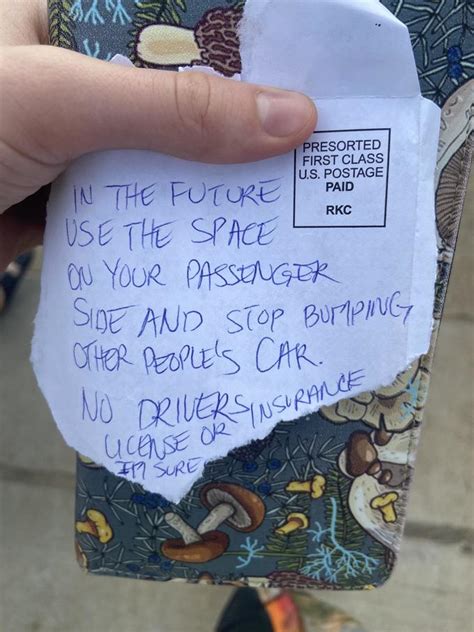 PRESORTED
FIRST CLASS
U.S. POSTAGE
PAID
RKC
IN THE FUTURE
USE THE SPACE
ON YOUR PASSENGER
SIDE AND STOP BUMPING
OTHER PEOPLE'S CAR.
NO DRIVERS
LICENSE OR INSURANCE
I'M SURE